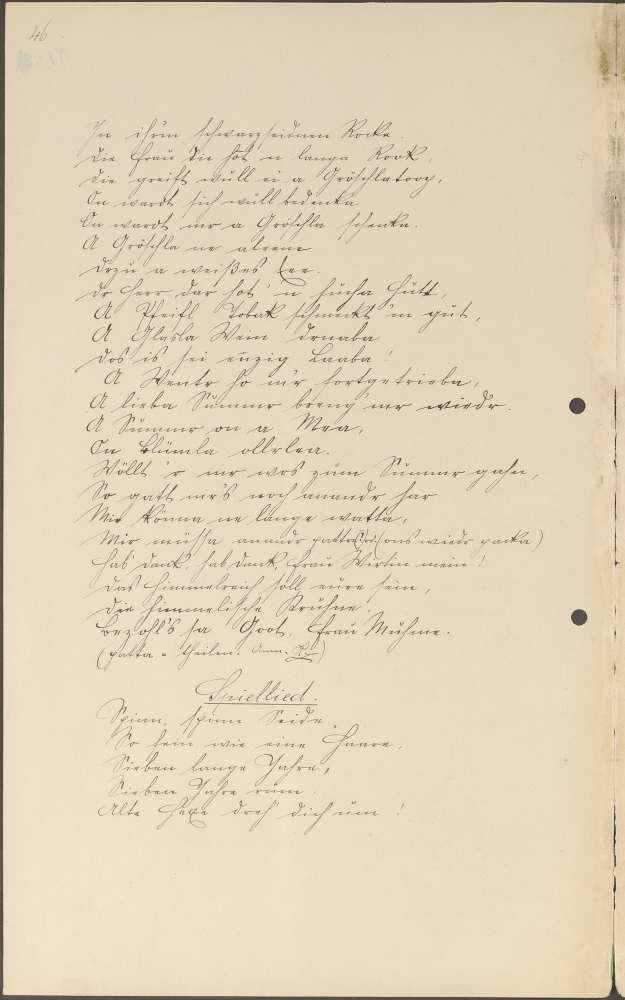 46.
In ihrem schwarzseidnen Rocke.
Die Frau die hot n langa Rook,
Die greift wull ei a Gröschlatoop,
On wardt sich wull bedenka
On wardt mr a Gröschla schenka.
A Gröschla ne aleene
Drzu a weißes Eee.
Dr Herr dar hot' n hucha Hutt,
A Pfeifl Tobak schmeckt 'm gut,
A Glasla Wein drnaba
Dos is sei enzig Laaba!
A Wentr ho mr fortgetrieba,
A lieba Summr breng mr wiedr.
A Summr on a Mea,
On Blümla ollrlea.
Wöllt 'r mr wos zum Summr gahn,
So gatt mr's noch anandr har
Mir könna ne lange watta,
Mir müssa anandr patta (sons wiedr packa)
Hab' dank, hab dank, Frau Wirtin mein!
Das Himmelreich soll eure sein,
Die himmelische Kruhne.
Bezohl's sa Goot, Frau Muhme.
(patta = theilen. Anm.)
Spiellied.
Spinn, spinn Seide,
So fein wie eine Haare,
Sieben lange Jahre,
Sieben Jahre rum.
Alte Hexe dreh' dich um!